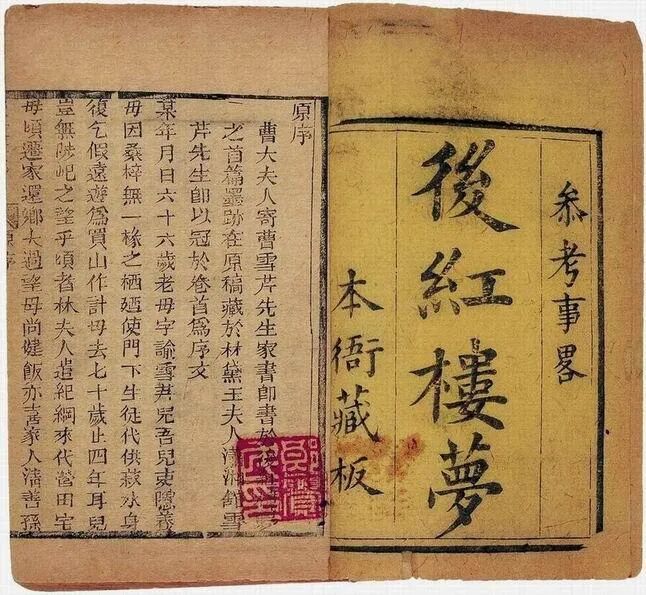 叅考事畧
後紅樓夢
本衙藏板
原序
曹大夫人寄曹雪芹先生家書卽書於
之首篇墨跡在原稿藏於林黛玉夫人瀟湘館雪
芹先生卽以冠於卷首爲序文
某年月日六十六歲老母字諭雪芹兒吾兒吏隱養
母因桑梓無一椽之栖廼使門下生徒代供菽水身
復乞假遠遊爲買山作計母去七十歲止四年耳兒
豈無陟屺之望乎頃者林夫人遣紀綱來代營田宅
母頃遷家還鄉大過望母尚健飯亦喜家人清善孫